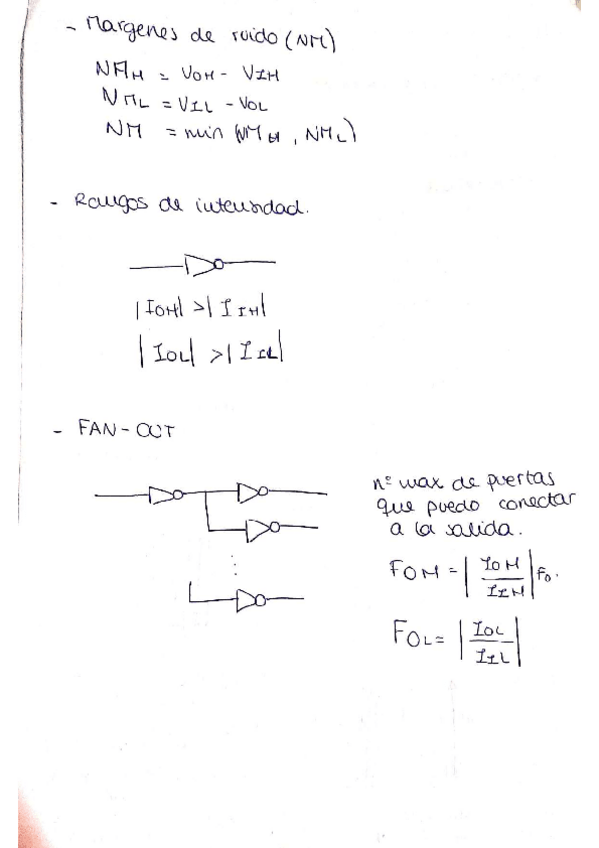 - Margenes de ruido (NM)
NMH = VOH - VIH
NML = VIL - VOL
NM = min (NMH, NML)
- Rangos de intensidad.
|IOH| > |IIH|
|IOL| > |IIL|
- FAN-OUT
nº max de puertas
que puedo conectar
a la salida.
FOH = |IOH/IIH| Fo.
FOL = |IOL/IIL|